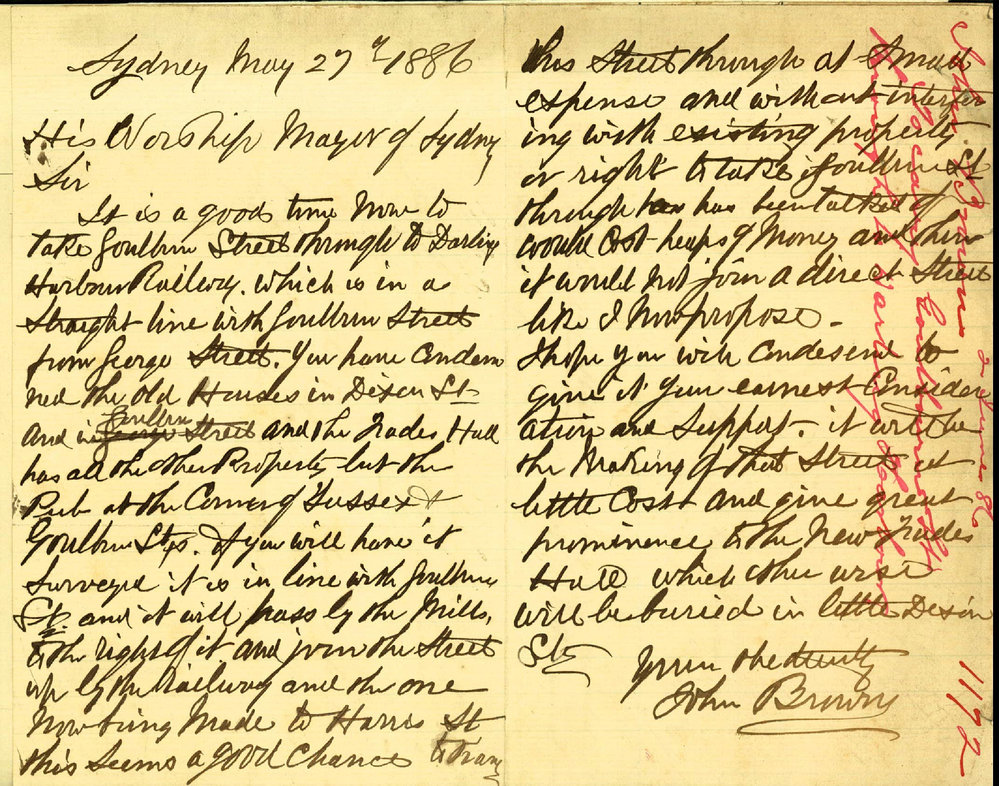 Sydney May 27th 1886
His Worship Mayor of Sydney
Sir
It is a good time Now to
take Goulburn Street through to Darling
Harbour Railway. Which is in a
Straight line with Goulburn Street
from George Street. You have Condem
ned the old Houses in Dixon St
Goulburn
and in George Street and the Trades Hall
has all the other Property but the
Pub at the Corner of Sussex &
Goulburn Sts. If you will have it
Surveyed it is in line with Goulburn
St. and it will pass by the Mills,
to the right of it and join the Street
up by the Railway and the one
Now being Made to Harris St
this Seems a good Chance to
this Street through at Small
expense and without interfer
ing with existing property
or right to take Goulburn St
through has been talked of
would Cost heaps of Money and then
it would Not join a direct Street
like I Now propose.
I hope you will Condesend to
give it your earnest Consider
ation and Support. it will be
the Making of that Street at
little Cost and give great
prominence to the New Trades
Hall which other wise
will be buried in little Dixon
St
Your obedtly
John Brown
John Brown
2 June 86
Goulburn St
to Darling Harbour
1172